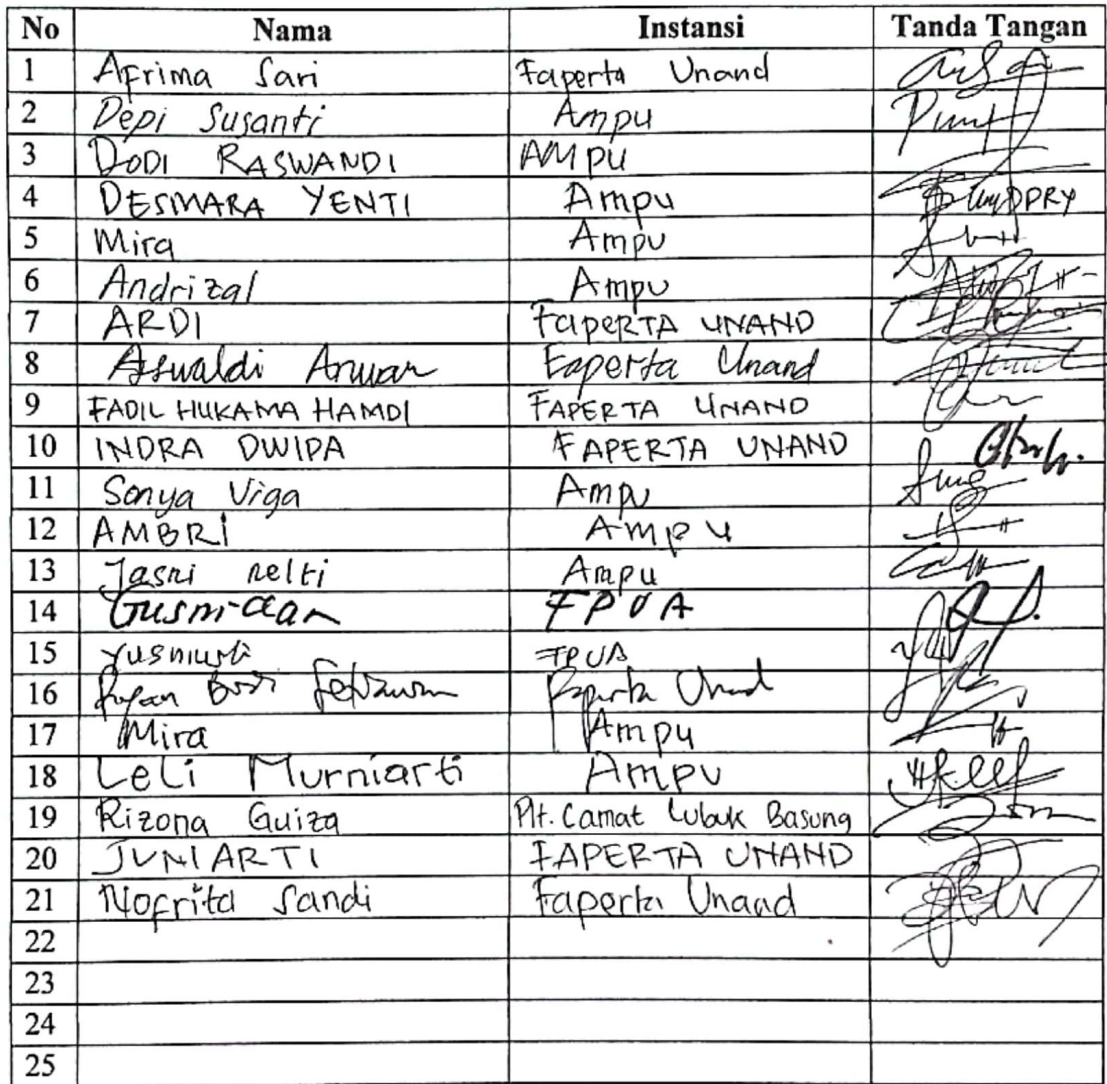 No Nama Instansi Tanda Tangan
1 Afrima Sari Faperta Unand
2 Depi Susanti Ampu
3 DODI RASWANDI AMPU
4 DESMARA YENTI Ampu
5 Mira Ampu
6 Andrizal Ampu
7 ARDI FaperTA UNAND
8 Aswaldi Anwar Faperta Unand
9 FADIL HUKAMA HAMDI FAPERTA UNAND
10 INDRA DWIPA FAPERTA UNAND
11 Sonya Viga Ampu
12 AMBRI Ampu
13 Jasni nelti Ampu
14 Gusmidar FPUA
15 Yusniwati FPUA
16 Faperta Unand
17 Mira Ampu
18 Leli Murniarti Ampu
19 Rizona Guiza Plt. Camat Lubuk Basung
20 JUNIARTI FAPERTA UNAND
21 Nofrita Sandi Faperta Unand
22
23
24
25